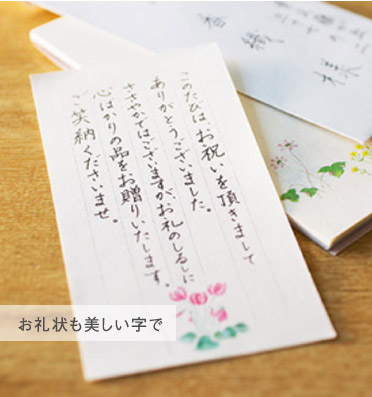 このたびは、お祝いを頂きまして
ありがとうございました。
ささやかではございますが、お礼のしるしに
心ばかりの品をお贈りいたします。
ご笑納くださいませ。
様
お礼状も美しい字で